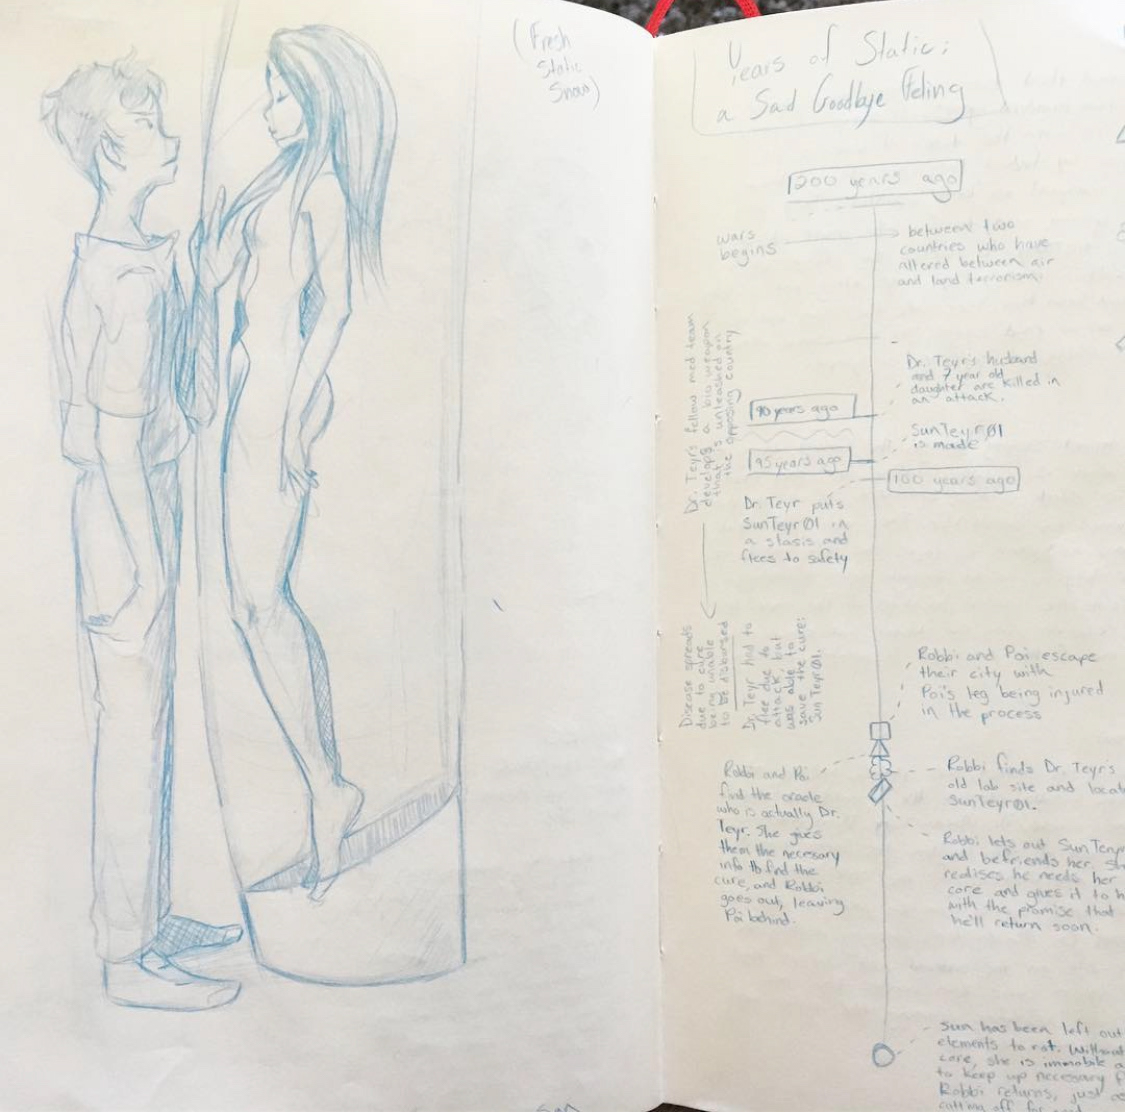 (Fresh
Static
Snow)
Years of Static:
a Sad Goodbye Feling
200 years ago
wars
begins
between two
countries who have
altered between air
and land terrorism.
Dr. Teyr's fellow med team
develops a bio weapon
that is unleashed on
the opposing country
Dr. Teyr's husband
and 7 year old
daughter are killed in
an attack.
90 years ago
SunTeyrØ1
is made
95 years ago
100 years ago
Dr. Teyr puts
SunTeyrØ1 in
a stasis and
flees to safety
Disease spreads
due to cure
being unable
to be disbursed
Dr. Teyr had to
flee due to
attack, but
was able to
save the cure:
SunTeyrØ1.
Robbi and Poi escape
their city with
Poi's leg being injured
in the process
Robbi and Poi
find the oracle
who is actually Dr.
Teyr. She gives
them the necesary
info to find the
cure, and Robbi
goes out, leaving
Poi behind.
Robbi finds Dr. Teyr's
old lab site and locat
SunTeyrØ1.
Robbi lets out SunTeyr
and befriends her. Sh
realises he needs her
core and gives it to h
with the promise that
he'll return soon.
Sun has been left out
elements to rot. Without
core, she is immobile a
to keep up necessary f
Robbi returns, just as
cutting off